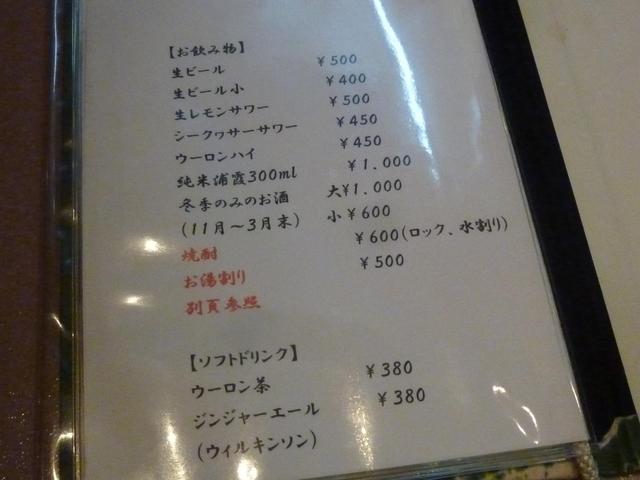 【お飲み物】
生ビール ￥500
生ビール小 ￥400
生レモンサワー ￥500
シークヮサーサワー ￥450
ウーロンハイ ￥450
純米浦霞300ml ￥1.000
冬季のみのお酒 大￥1.000
(11月～3月末) 小￥600
焼酎 ￥600(ロック、水割り)
お湯割り ￥500
別頁参照
【ソフトドリンク】
ウーロン茶 ￥380
ジンジャーエール ￥380
(ウィルキンソン)